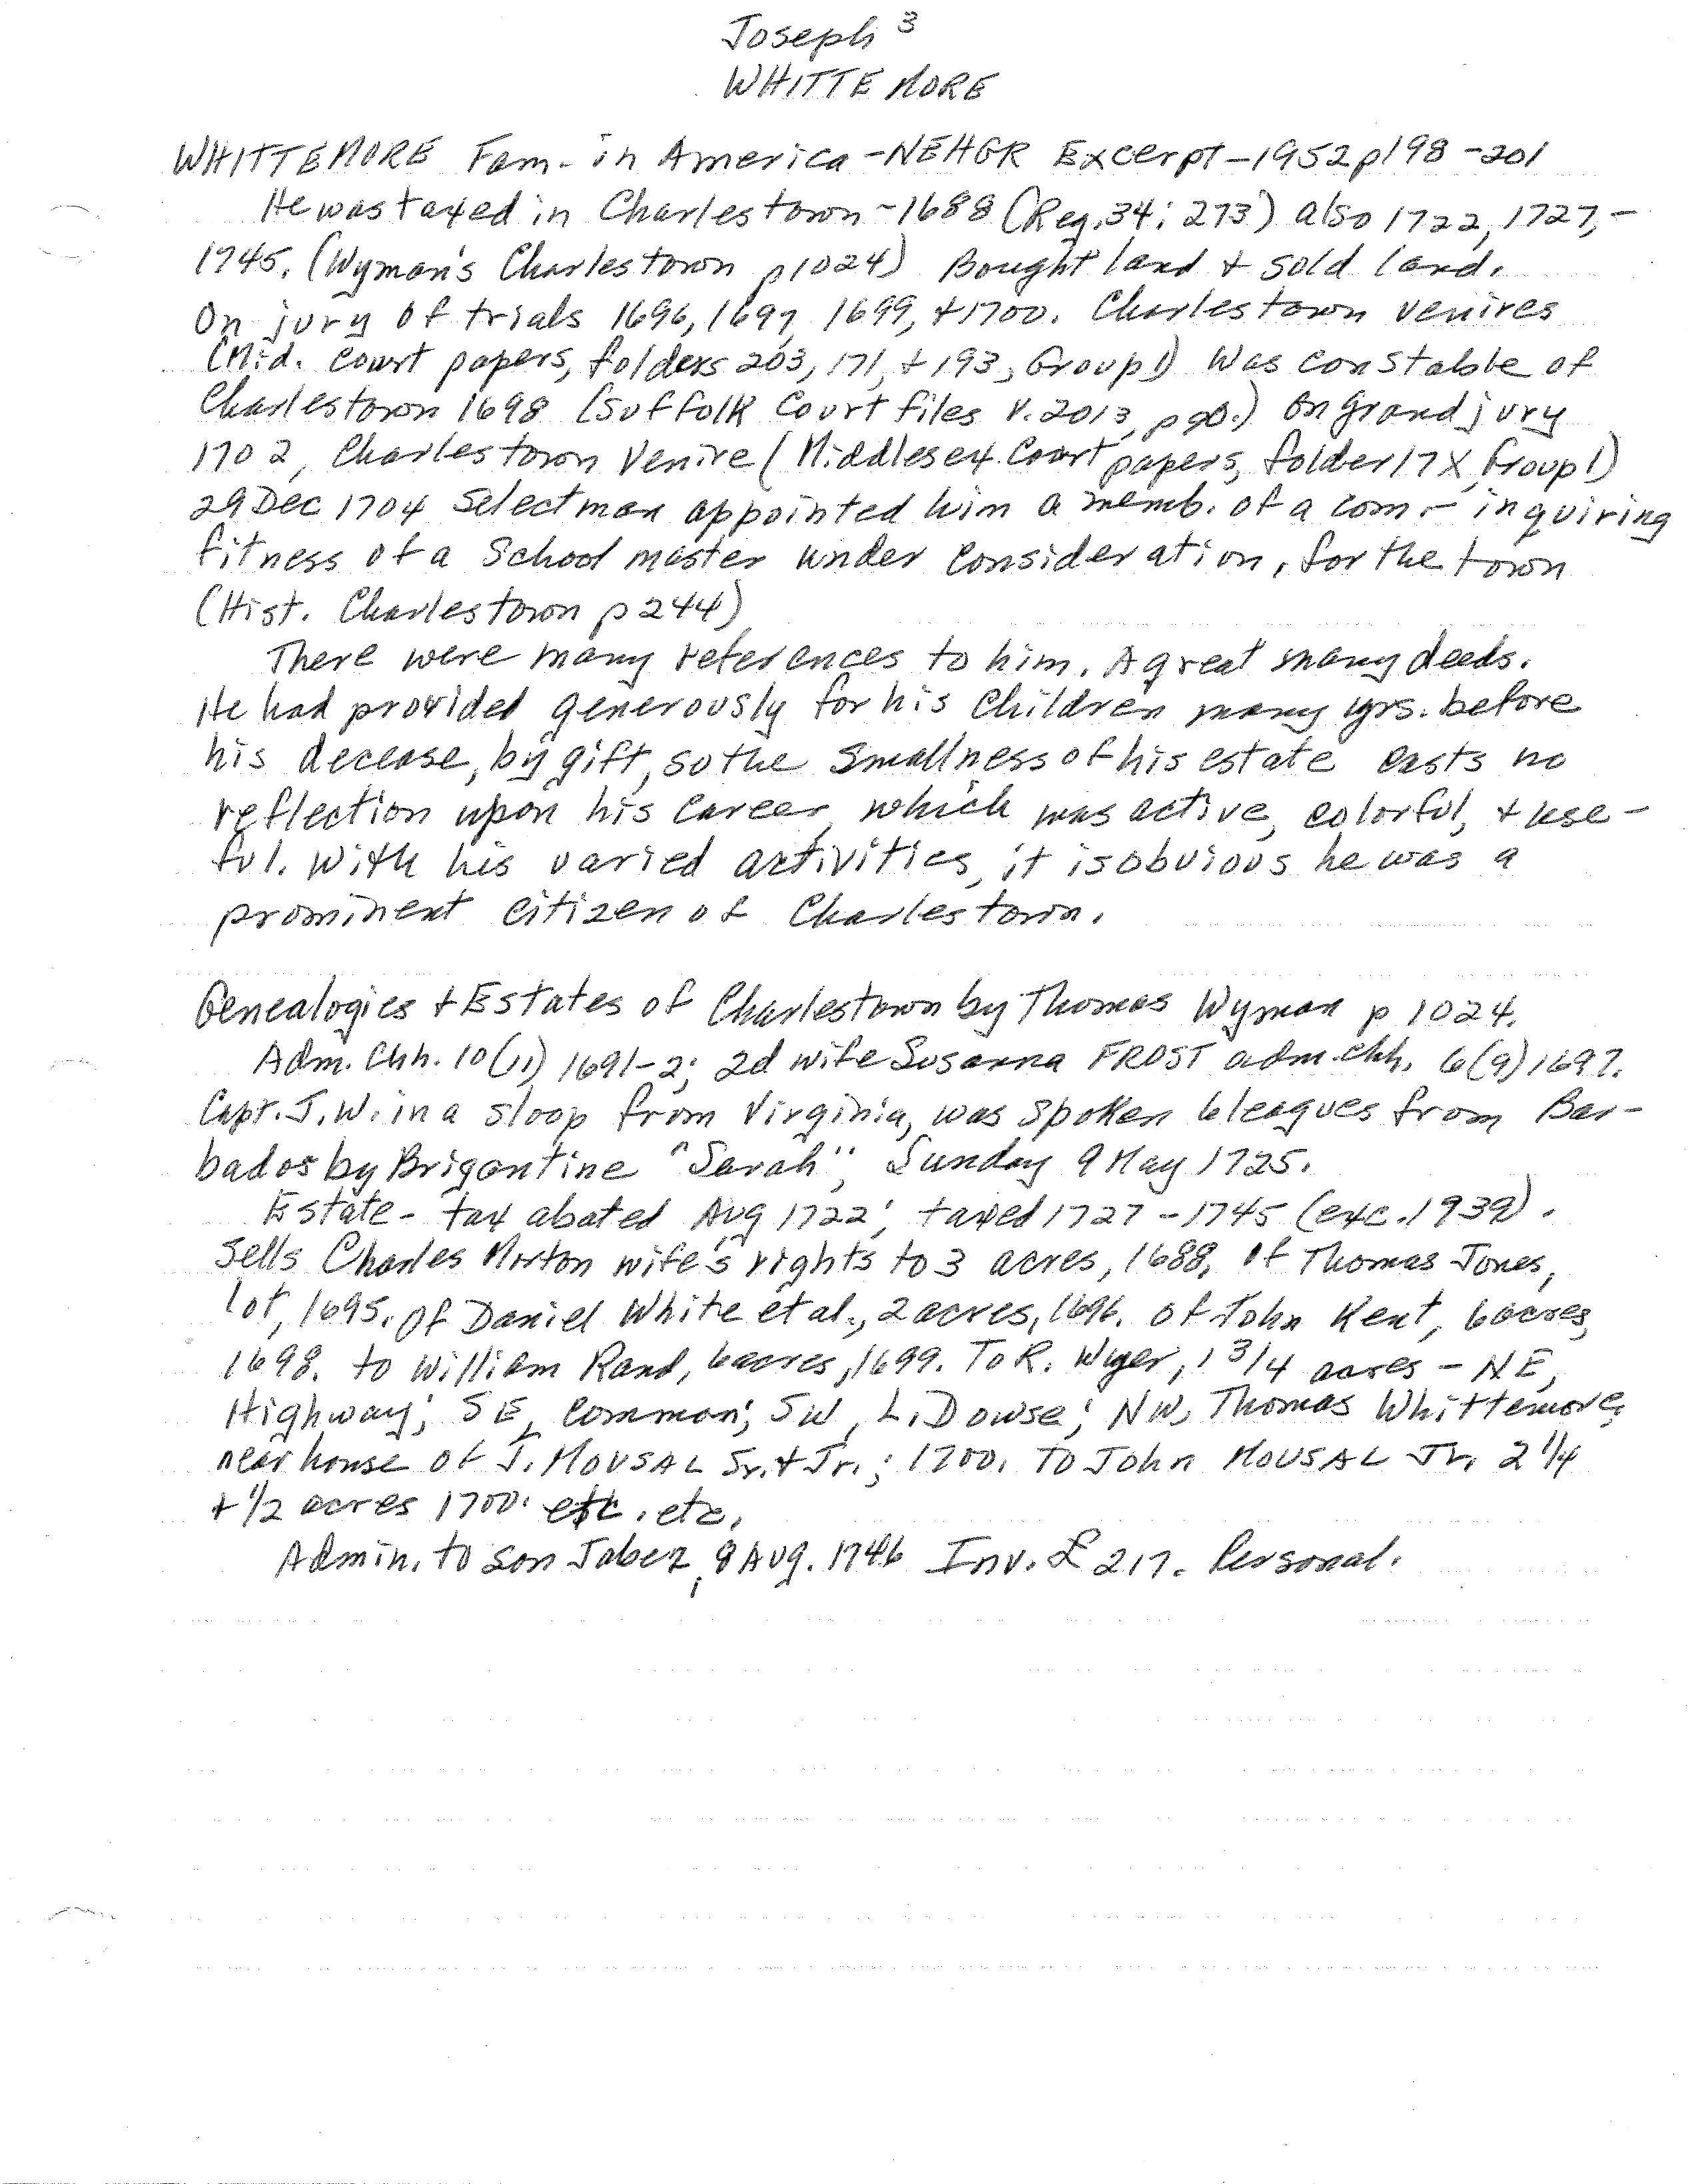 Joseph ³
WHITTEMORE
WHITTEMORE Fam- in America -NEHGR Excerpt-1952 p198-201
He was taxed in Charlestown -1688 (Reg. 34: 273) also 1722, 1727,-
1745. (Wyman's Charlestown p1024) Bought land + sold land.
On jury of trials 1696, 1697, 1699, +1700. Charlestown venires
(Mid. court papers, folders 203, 171, + 193, Group 1) Was constable of
Charlestown 1698 (Suffolk Court files V. 2013, p90.) On grand jury
1702, Charlestown Venire (Middlesex Court papers, folder 17X, Group 1)
29 Dec 1704 Selectman appointed him a memb. of a com - inquiring
fitness of a School master under consideration, for the town
(Hist. Charlestown p 244)
There were many references to him. A great many deeds.
He had provided generously for his children many yrs. before
his decease, by gift, so the smallness of his estate casts no
reflection upon his career, which was active, colorful, + use-
ful. With his varied activities, it is obvious he was a
prominent citizen of Charlestown.
Genealogies + Estates of Charlestown by Thomas Wyman p 1024.
Adm. Chh. 10(11) 1691-2; 2d wife Susanna FROST adm. chh. 6(9) 1697.
Capt. J. W. in a sloop from Virginia, was spoken 6 leagues from Bar-
bados by Brigantine "Sarah", Sunday 9 May 1725.
Estate- tax abated Aug 1722; taxed 1727-1745 (exc. 1939).
Sells Charles Morton wife's rights to 3 acres, 1688, of Thomas Jones,
lot, 1695. Of Daniel White et al., 2 acres, 1696. of John Kent, 6 acres,
1698. to William Rand, 6 acres, 1699. To R. Wyer, 1 3/4 acres - NE,
Highway; SE, common; SW, L. Dowse; NW, Thomas Whittemore,
near house of J. MOUSAL Sr. + Jr.; 1700. To John MOUSAL Jr. 2 1/4
+ 1/2 acres 1700. etc. etc.
Admin. to son Jabez, 8 Aug. 1746 Inv. £ 217. Personal.